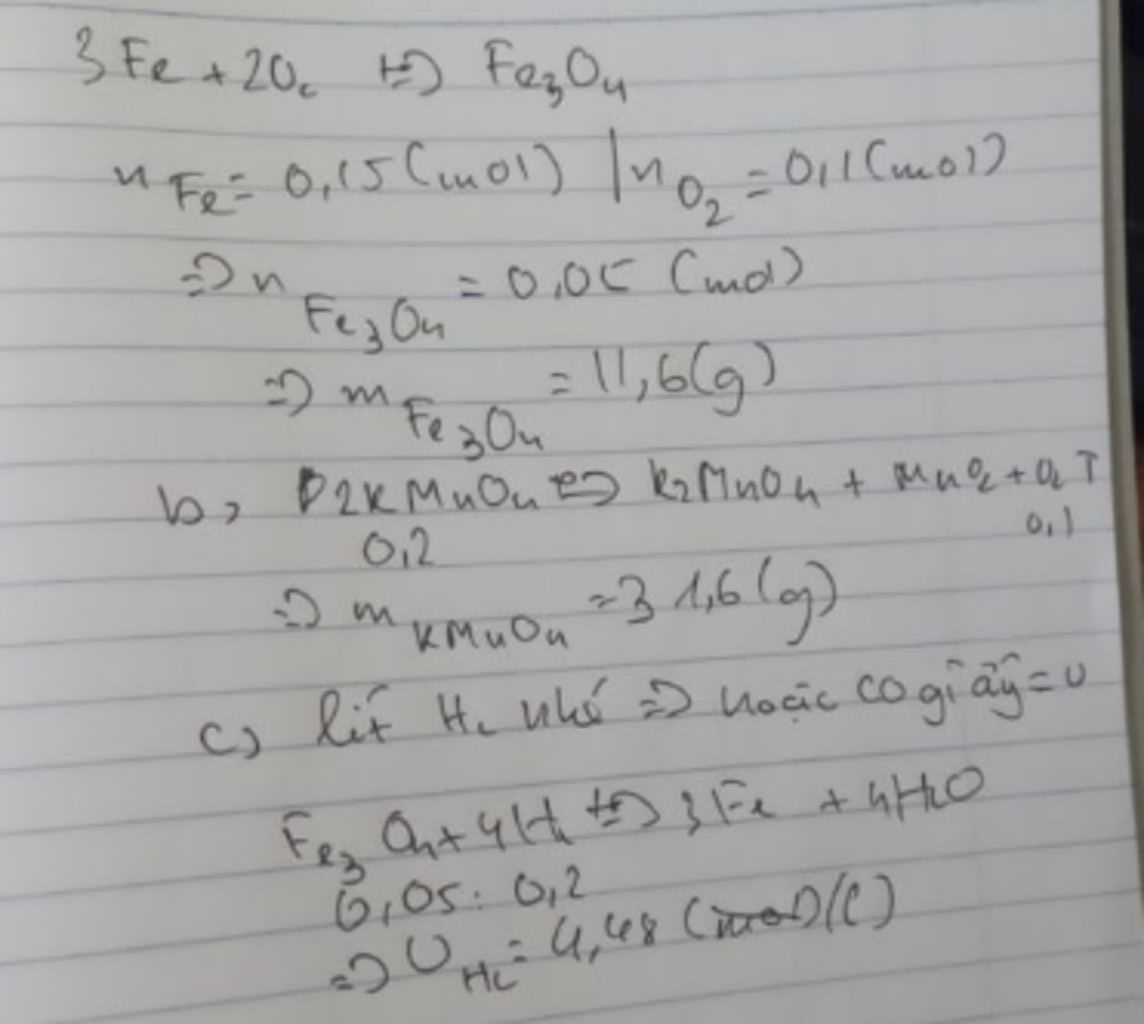 3Fe + 2O₂ t°=> Fe₃O₄
n Fe = 0,15 (mol) | n O₂ = 0,1 (mol)
=> n Fe₃O₄ = 0,05 (mol)
=> m Fe₃O₄ = 11,6 (g)
b, 2KMnO₄ t°=> K₂MnO₄ + MnO₂ + O₂ ↑
0,2 0,1
=> m KMnO₄ = 31,6 (g)
c) lít H₂ nhé =>
Fe₃O₄ + 4H₂ t°=> 3Fe + 4H₂O
0,05 : 0,2
=> V H₂ = 4,48 (l)